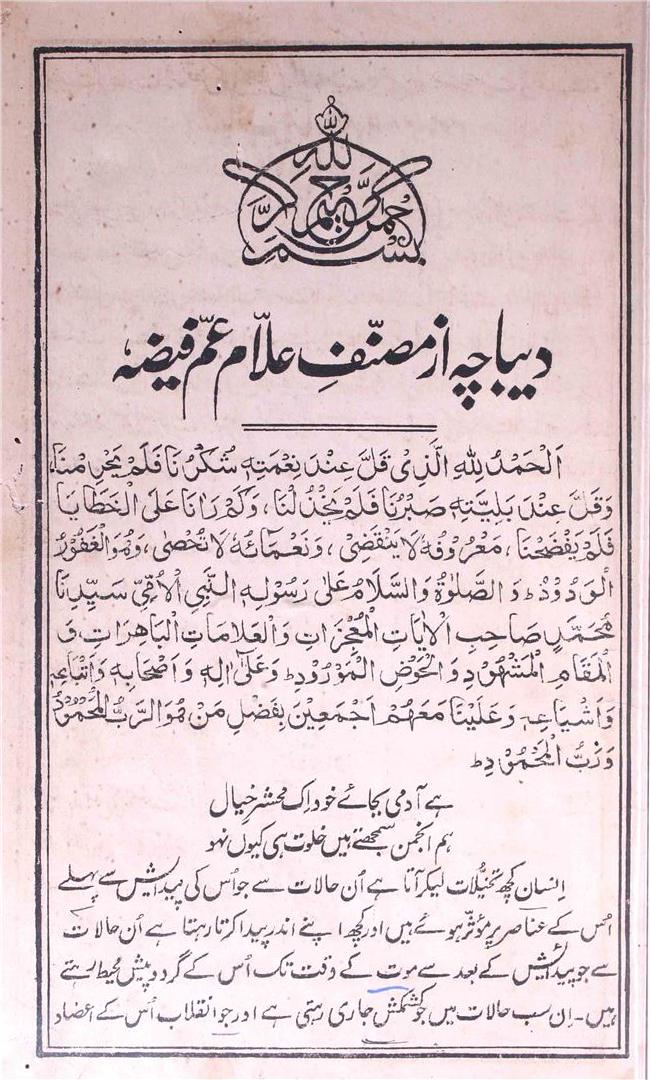 بسم الله الرحمن الرحيم
دیباچہ از مصنّفِ علاّم عمّ فیضہٗ
اَلْحَمْدُ لِلّٰهِ الَّذِیْ قَلَّ عِنْدَ نِعْمَتِهٖ شُکْرُنَا فَلَمْ یَحْرِمْنَا،
وَقَلَّ عِنْدَ بَلِیَّتِهٖ صَبْرُنَا فَلَمْ یَخْذُلْنَا، وَکَمْ رَاٰنَا عَلَی الْخَطَایَا
فَلَمْ یَفْضَحْنَا، مَعْرُوْفُهٗ لَا یَنْقَضِیْ، وَنَعْمَائُهٗ لَا تُحْصٰی، وَهُوَ الْغَفُوْرُ
الْوَدُوْدُ ط وَالصَّلٰوةُ وَالسَّلَامُ عَلٰی رَسُوْلِهِ النَّبِیِّ الْاُمِّیِّ سَیِّدِنَا
مُحَمَّدٍ صَاحِبِ الْاٰیَاتِ الْمُعْجِزَاتِ وَالْعَلَامَاتِ الْبَاهِرَاتِ، وَ
الْمَقَامِ الْمَشْهُوْدِ وَالْحَوْضِ الْمَوْرُوْدِ ط وَعَلٰی اٰلِهٖ وَاَصْحَابِهٖ وَاَتْبَاعِهٖ
وَاَشْیَاعِهٖ وَعَلَیْنَا مَعَهُمْ اَجْمَعِیْنَ بِفَضْلِ مَنْ هُوَ الرَّبُّ الْمَحْمُوْدُ
وَرَبُّ الْمَحْمُوْدِ ط
ہے آدمی بجائے خود اِک محشرِ خیال
ہم انجمن سمجھتے ہیں خلوت ہی کیوں نہو
اِنسان کچھ تخیُّلات لیکر آتا ہے اُن حالات سے جو اُس کی پیدائش سے پہلے
اُس کے عناصر پر مؤثّر ہوئے ہیں اور کچھ اپنے اندر پیدا کرتا رہتا ہے اُن حالات
سے جو پیدائش کے بعد سے موت کے وقت تک اُس کے گرد و پیش محیط رہتے
ہیں۔ اِن سب حالات میں جو کشمکش جاری رہتی ہے اور جو انقلاب اُس کے اعضاء